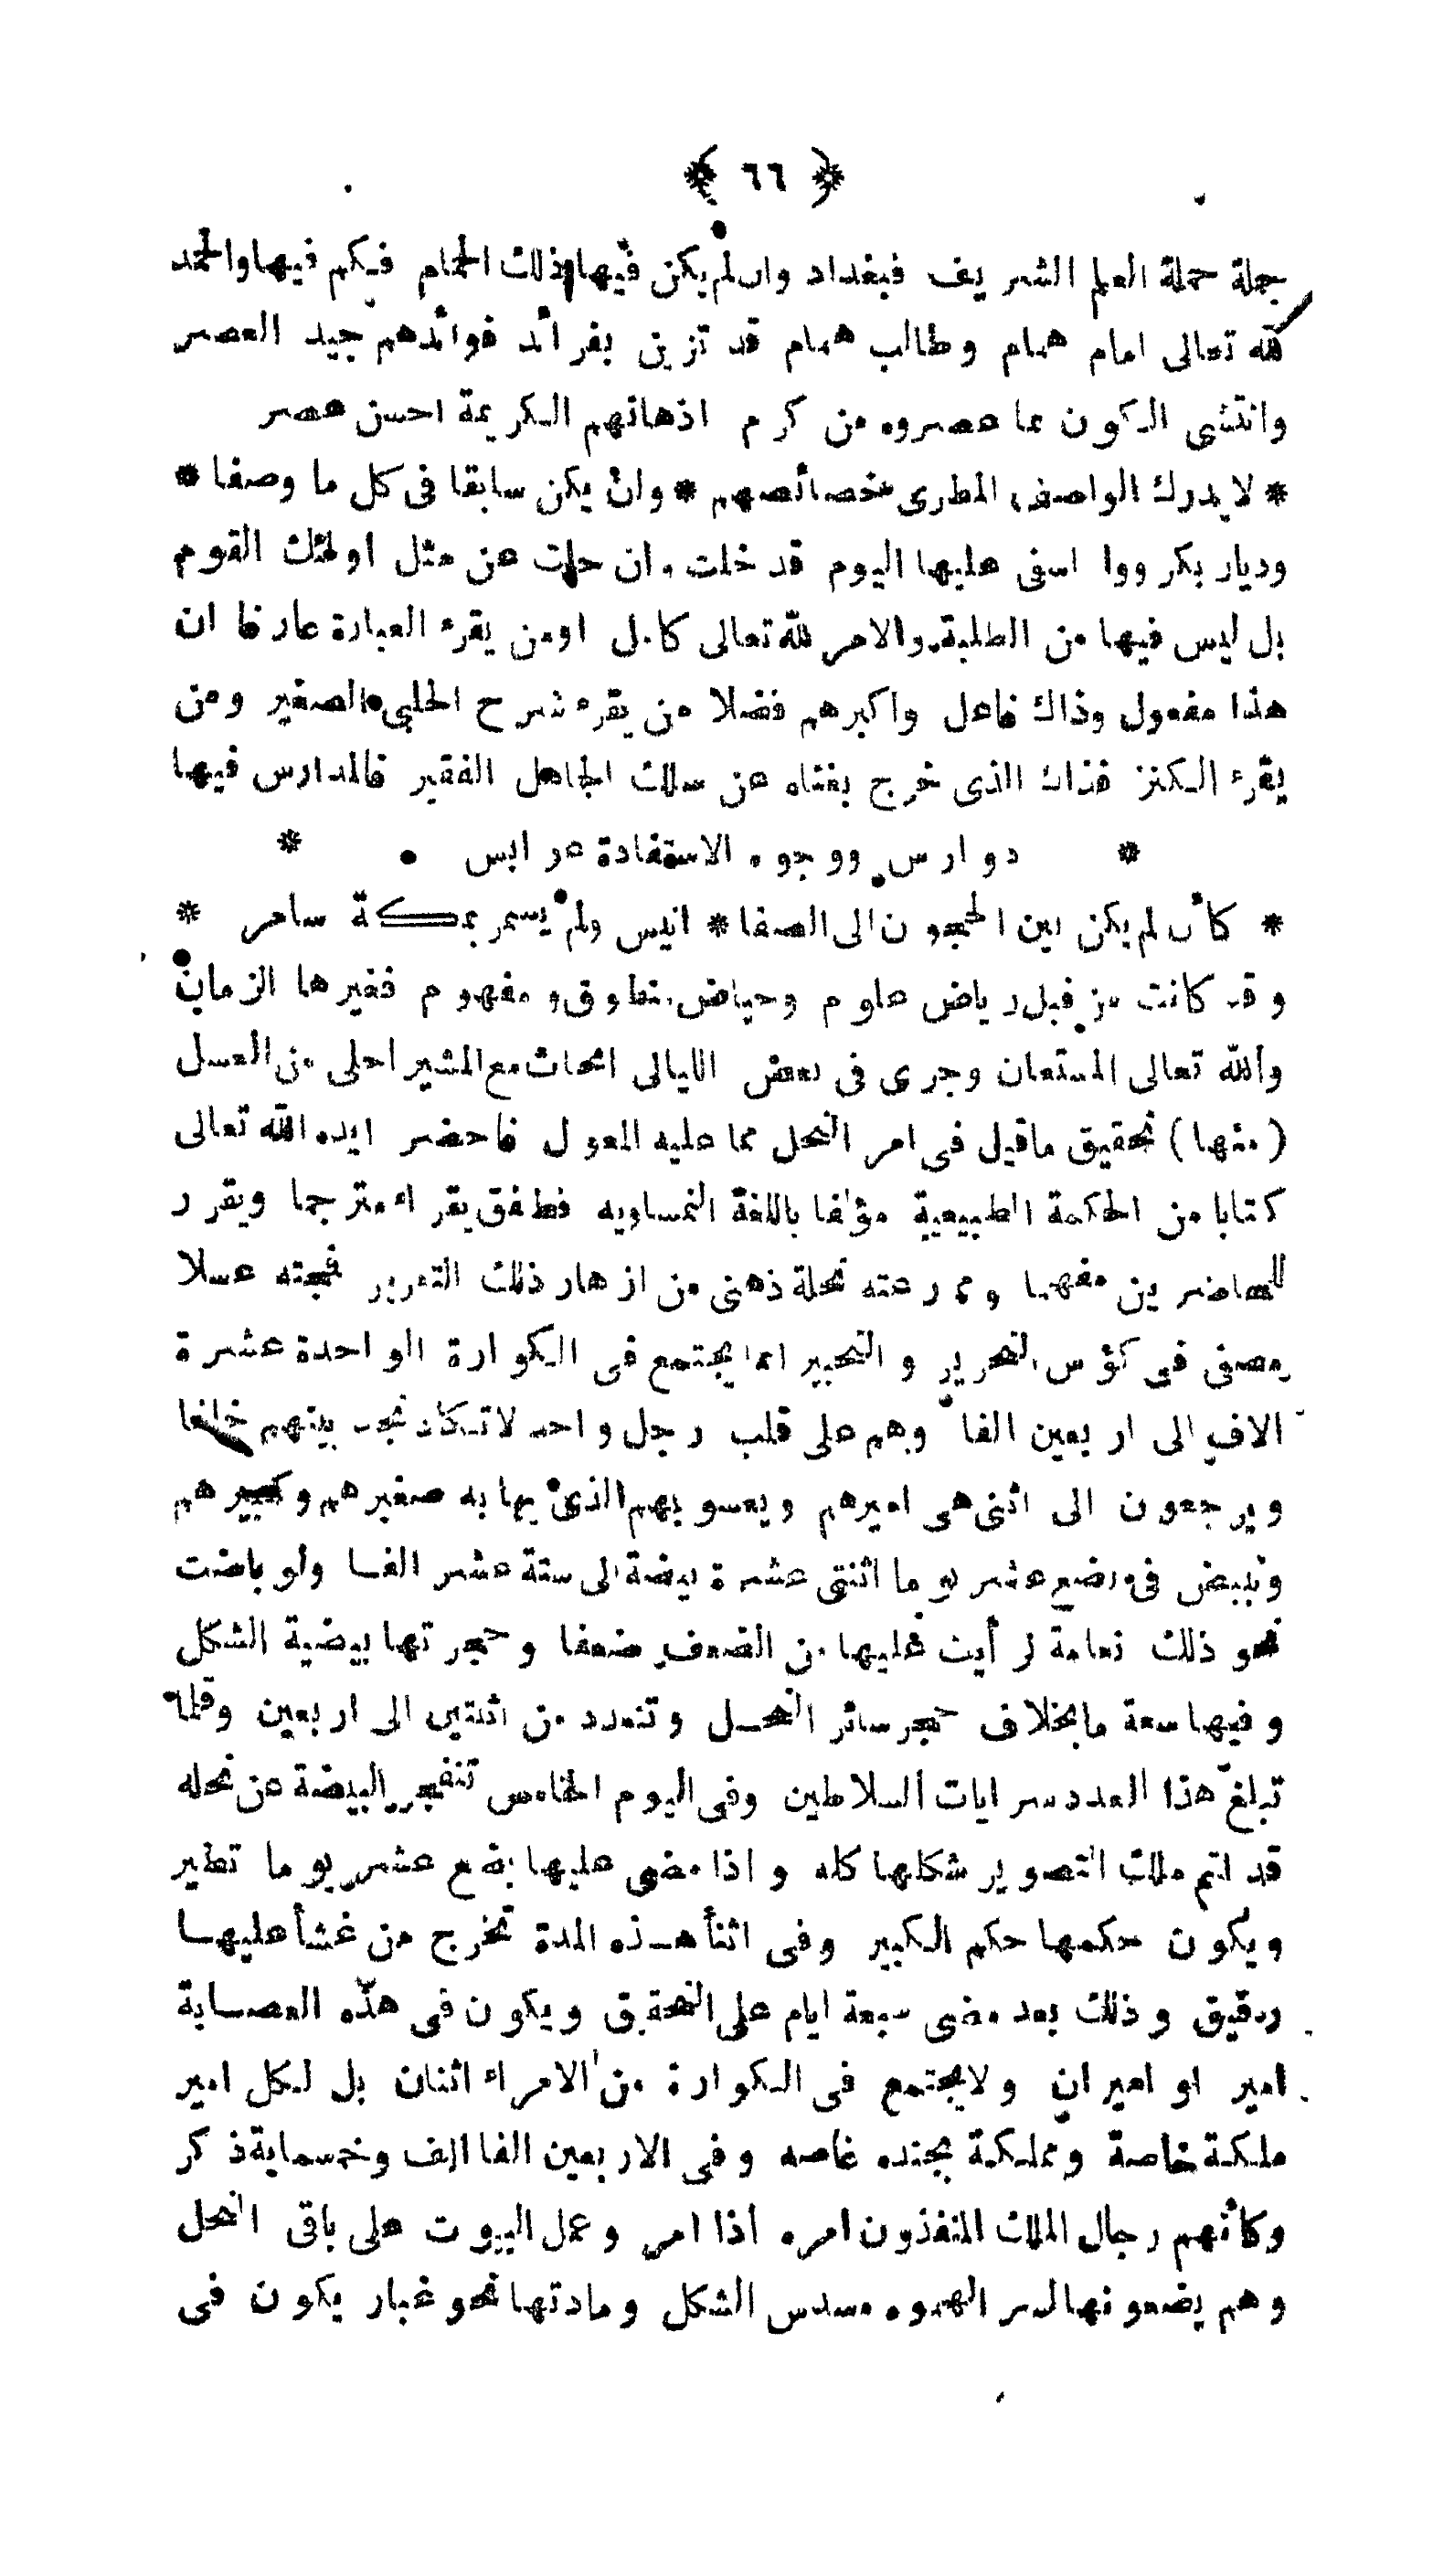 ﴿ ٦٦ ﴾
جملة حملة العلم الشريف فبغداد وان لم يكن فيها ذلك الحمام فكم فيها والحمد
لله تعالى امام همام وطالب همام قد تزين بفرائد فوائدهم جيد العصر
وانتشى الكون مما عصروه من كرم اذهانهم الكريمة احسن عصر
* لا يدرك الواصف المطرى خصائصهم * وان يكن سابقا فى كل ما وصفا *
وديار بكر ووا اسفى عليها اليوم قد خلت من ان حلت عن مثل اولئك القوم
بل ليس فيها من الطلبة والامر لله تعالى كامل اومن يقرء العبارة عارفا ان
هذا مفعول وذاك فاعل واكبرهم فضلا من يقرء شرح الحلبى الصغير ومن
يقرء الكنز فذاك الذى خرج بغناه عن سلك الجاهل الفقير فالمدارس فيها
* دوارس ووجوه الاستفادة عوابس *
* كأن لم يكن بين الحجون الى الصفا * انيس ولم يسمر بمكة سامر *
وقد كانت من قبل رياض علوم وحياض منطوق ومفهوم فغيرها الزمان
والله تعالى المستعان وجرى فى بعض الليالى ابحاث مع المشير احلى من العسل
(منها) تحقيق ماقيل فى امر النحل مما عليه المعول فاحضر ايده الله تعالى
كتابا من الحكمة الطبيعية مؤلفا باللغة النمساويه فطفق يقراء مترجما ويقرر
للحاضرين مفهما ومما رعته نحلة ذهنى من ازهار ذلك التقرير فمجته عسلا
مصفى فى كؤس التحرير والتحبير انما يجتمع فى الكوارة الواحدة عشرة
الاف الى اربعين الفا وهم على قلب رجل واحد لاتكاد تجد بينهم خلفا
ويرجعون الى انثى هى اميرهم ويعسوبهم الذى يهابه صغيرهم وكبيرهم
وتبيض فى بضع عشر يوما اثنتى عشرة بيضة الى ستة عشر الفا ولو باضت
نحو ذلك نعامة لرأيت عليها من الضعف ضعفا وحجرتها بيضية الشكل
وفيها سعة ما بخلاف حجر سائر النحل وتتعدد من اثنتين الى اربعين وقلما
تبلغ هذا العدد سرايات السلاطين وفى اليوم الخامس تنفجر البيضة عن نحله
قد اتم ملك التصوير شكلها كله واذا مضى عليها بضع عشر يوما تطير
ويكون حكمها حكم الكبير وفى اثنأ هذه المدة تخرج من غشأ عليها
رقيق وذلك بعد مضى سبعة ايام على التحقيق ويكون فى هذه العصابة
امير او اميران ولا يجتمع فى الكوارة من الامراء اثنان بل لكل امير
ملكة خاصة ومملكة بجنده غاصه وفى الاربعين الفا الف وخمسماية ذكر
وكأنهم رجال الملك المنفذون امره اذا امر وعمل البيوت على باقى النحل
وهم يضعونها مسدس الشكل ومادتها نحو غبار يكون فى